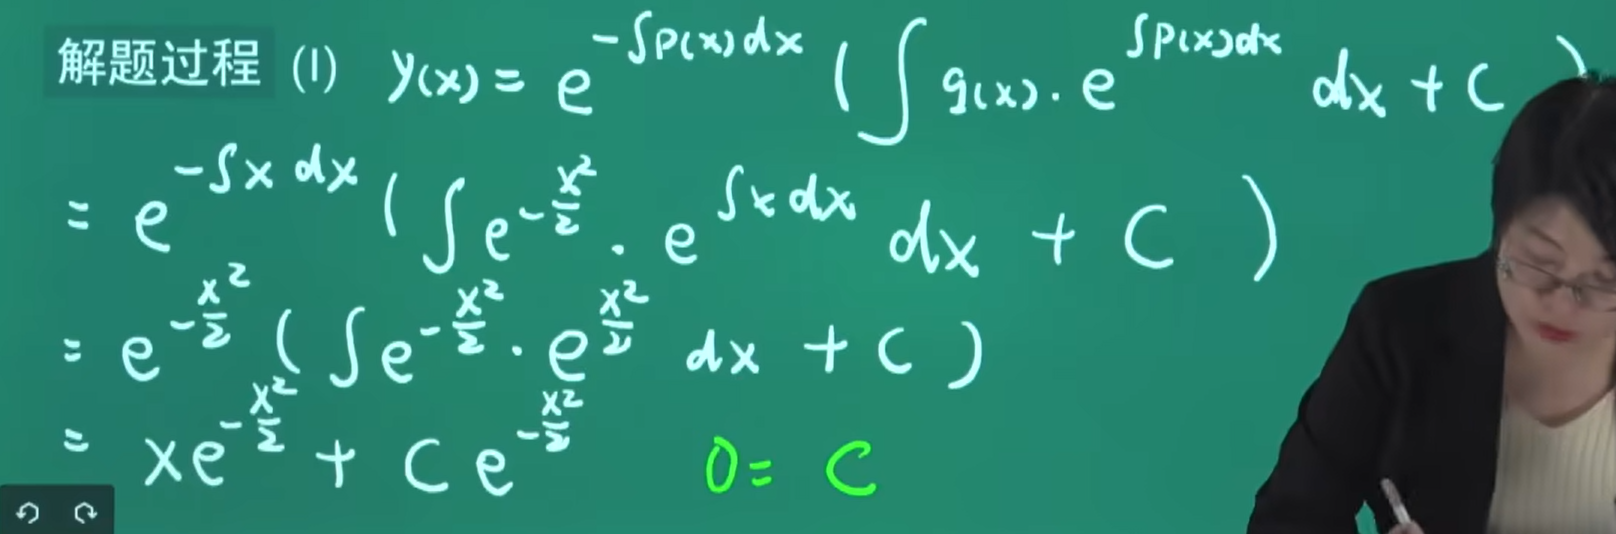 解题过程 (1) y(x) = e^{-∫p(x)dx} (∫q(x)·e^{∫p(x)dx} dx + C)
= e^{-∫x dx} (∫e^{-x²/2}·e^{∫x dx} dx + C)
= e^{-x²/2} (∫e^{-x²/2}·e^{x²/2} dx + C)
= xe^{-x²/2} + Ce^{-x²/2} 0 = C